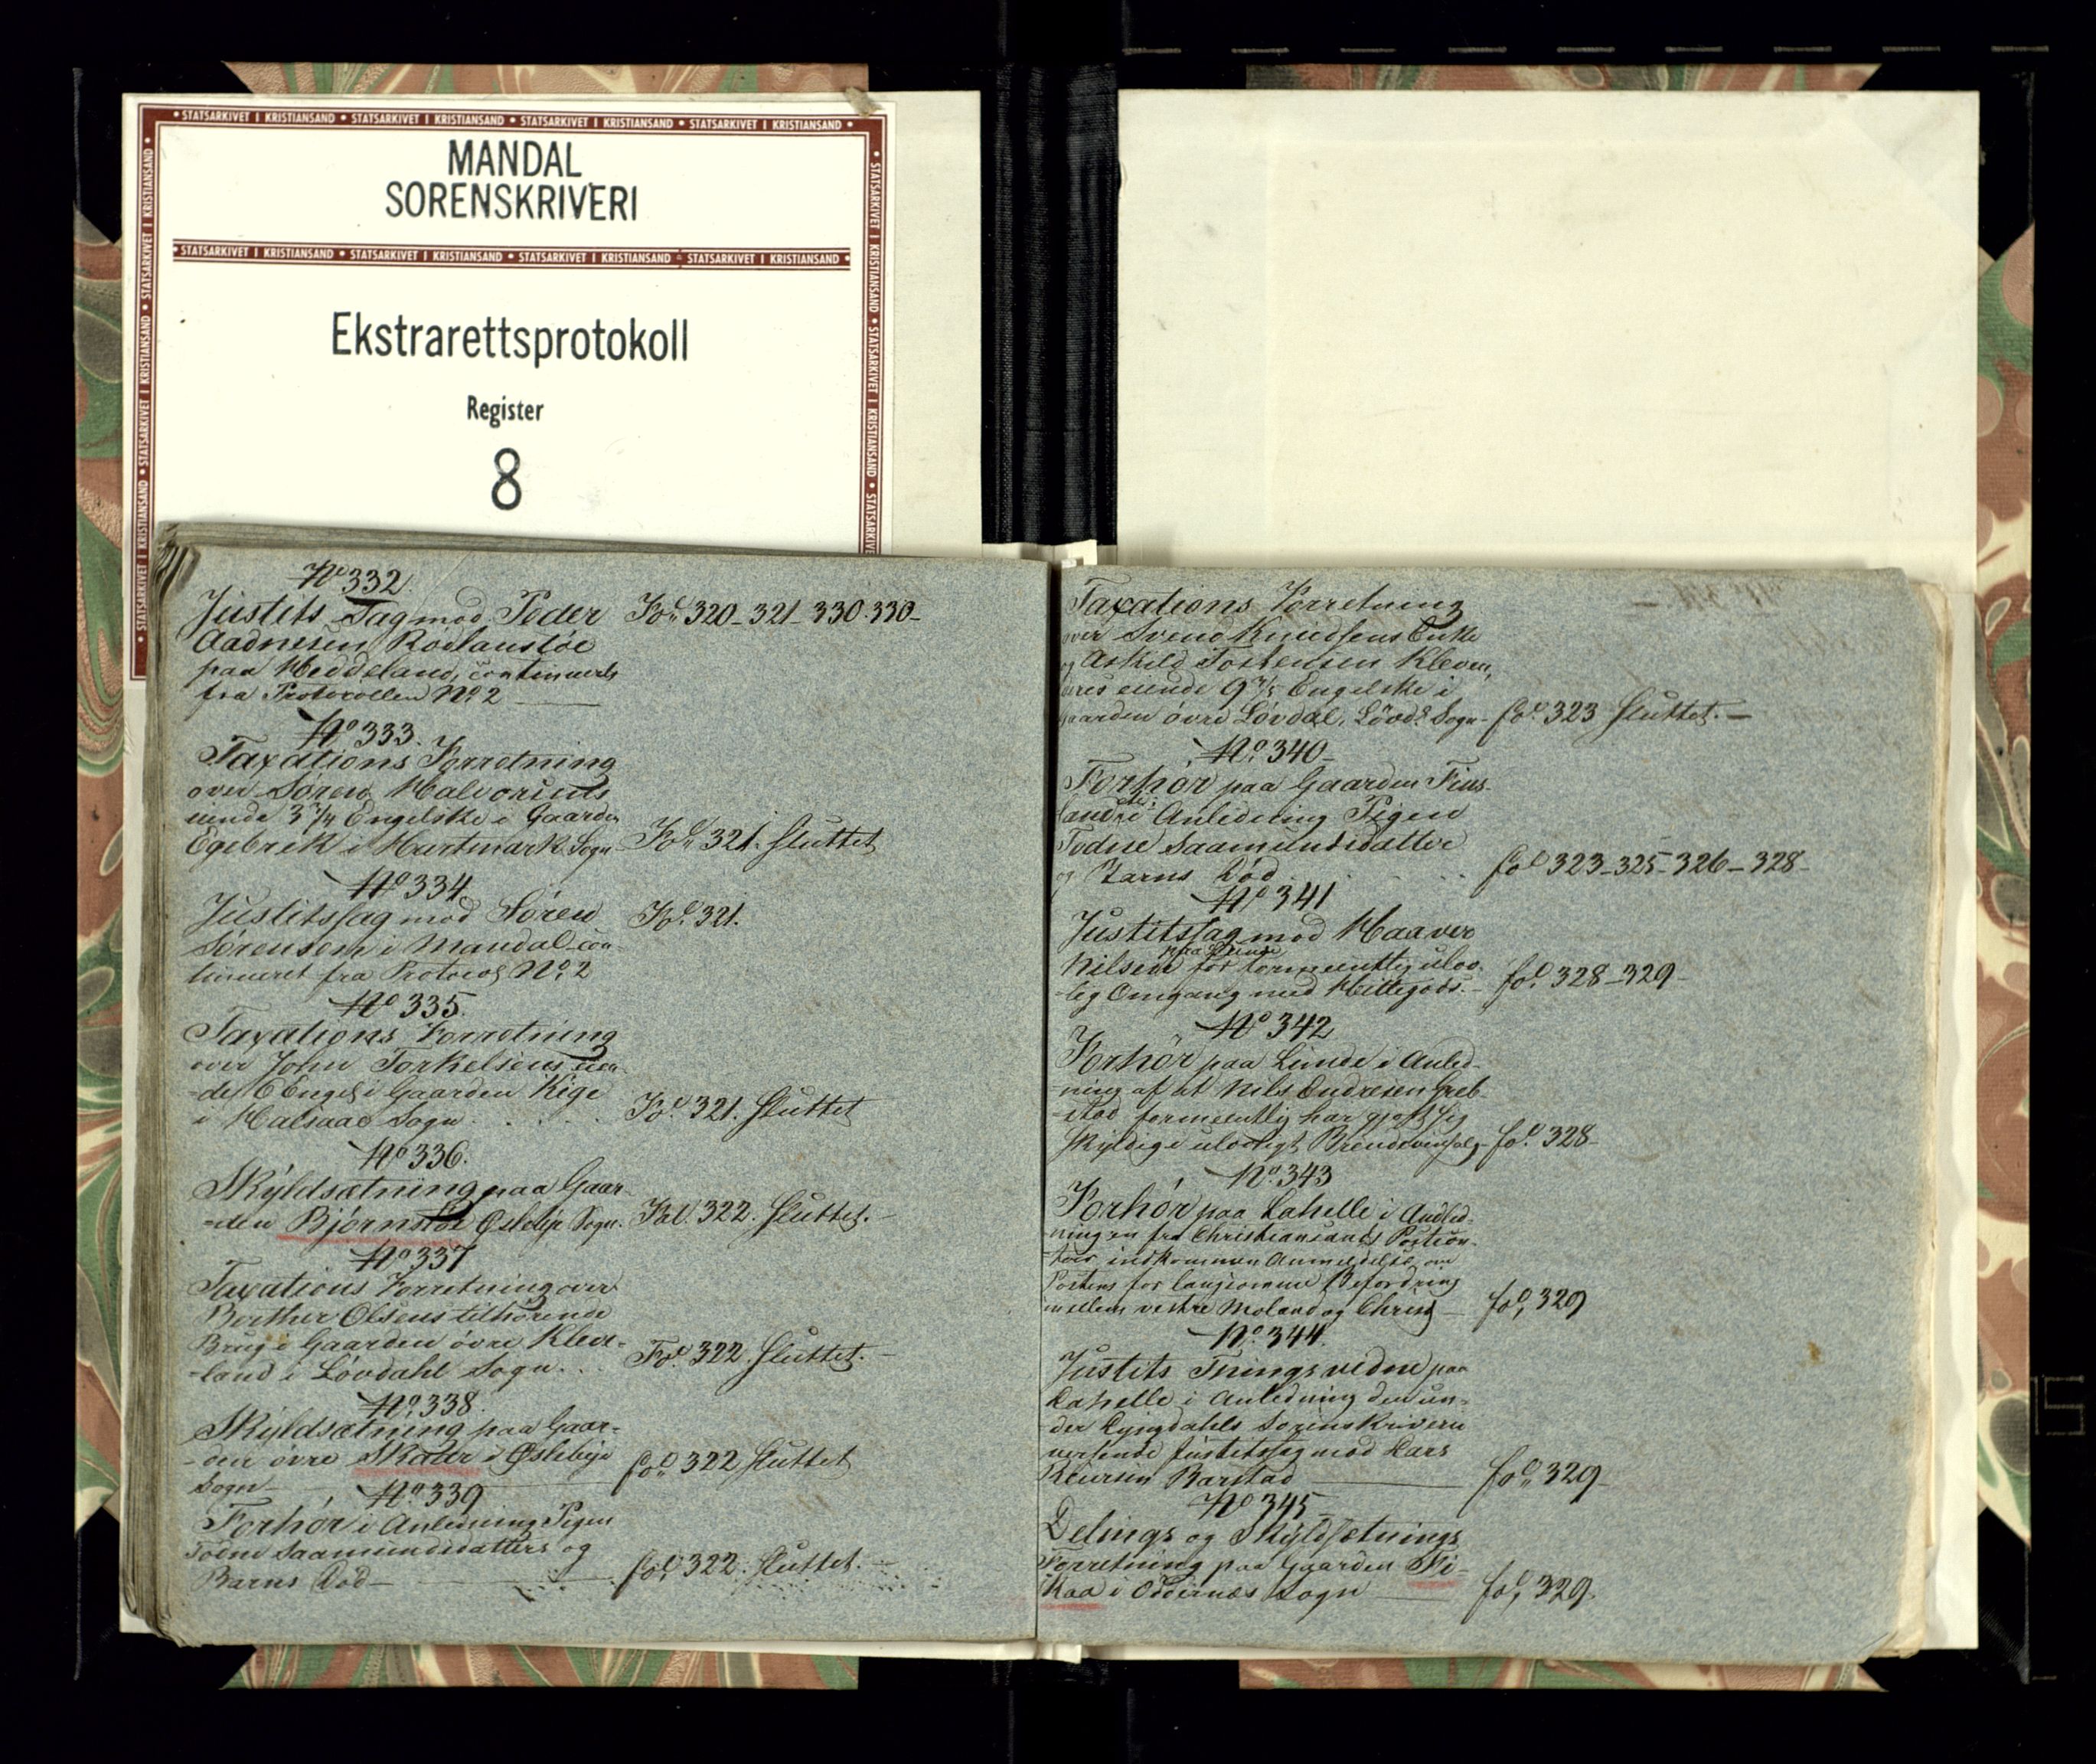 STATSARKIVET I KRISTIANSAND • STATSARKIVET I KRISTIANSAND • STATSARKIVET I KRISTIANSAND • STATSARKIVET I KRISTIANSAND
MANDAL
SORENSKRIVERI
STATSARKIVET I KRISTIANSAND • STATSARKIVET I KRISTIANSAND • STATSARKIVET I KRISTIANSAND • STATSARKIVET I KRISTIANSAND
Ekstrarettsprotokoll
Register
8
No 332.
Justits Sag mod Peder Fol: 320-321-330.330-
Aadnesen Rodlausløe
paa Heddeland, continueret
fra Protocollen No 2
No 333.
Taxations Forretning
over Søren Halvorsens
eiende 3 3/4 Engelske i Gaarden
Egebrek i Hartmark Sogn Fol: 321. sluttet
No 334
Justitssag mod Søren Fol. 321.
Sørensen i Mandal con-
tinueret fra Protocol No 2
No 335.
Taxations Forretning
over John Torkelsens eien-
de 6 Engel: i Gaarden Kige
i Halsaae Sogn Fol 321. sluttet
No 336.
Skyldsætning paa Gaar-
den Bjørnstøl Øslebye Sogn. Fol. 322. sluttet.
No 337
Taxations Forretning over
Berther Olsens tilhørende
Brug i Gaarden øvre Kleve-
land i Løvdahl Sogn. Fol. 322. sluttet.
No 338.
Skyldsætning paa Gaar-
den øvre Skaar i Øslebye
Sogn fol: 322 sluttet
No 339
Forhør i Anledning Pigen
Todne Saamundsdatters og
Barns Død fol. 322. sluttet.
Taxations Forretning
over Svend Knudsens Enke
og Askild Tostensen Kleven,
deres eiende 9 3/5 Engelske i
Gaarden øvre Løvdal, Løvd: Sogn- fol: 323 sluttet.
No 340
Forhør paa Gaarden Fins-
land i Anledning Pigen
Todne Saamundsdatter
og Barns Død fol 323-325-326-328-
No 341
Justitssag mod Haaver
Nilsen for formeentlig ulov-
lig Omgang med Hittegods. fol. 328-329-
No 342
Forhør paa Lunde i Anled-
ning af at Nils Endresen Greb-
stad formeentlig har gjort sig
skyldig i ulovligt Brendevinsalg fol. 328-
No 343
Forhør paa Lahelle i Andled-
ning en fra Christiansands Postcon-
toir indkommen Anmeldelse om
Postens for langsomme Befordring
mellem vestre Moland og Christ fol, 329
No 344.
Justits Tningsvidne paa
Lahelle i Anledning den un-
der Lyngdahls Sorenskriverie
verserende Justitssag mod Lars
Barstad fol: 329-
No 345
Delings og Skyldsætnings
Forretning paa Gaarden Fi-
kaa i Oddernæs Sogn fol, 329.